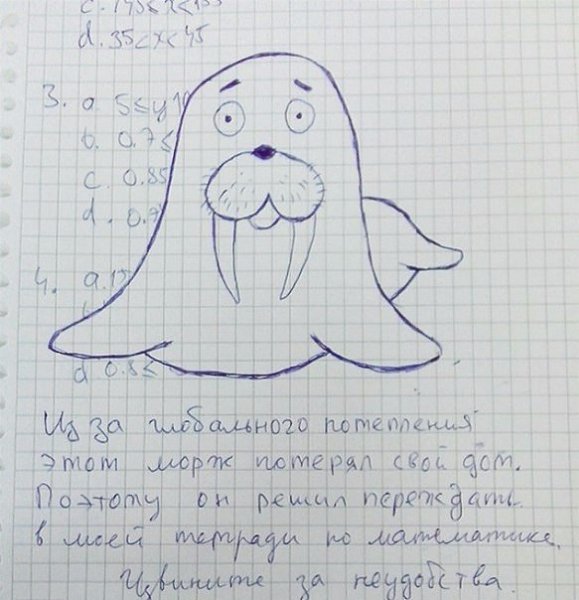 c. 145≤x≤155
d. 35<x<45
3. a 5≤y
b. 0.7≤
c. 0.85
d. 0.7
4. a.
d 0.8≤
Из за глобального потепления
этот морж потерял свой дом.
Поэтому он решил переждать
в моей тетради по математике.
Извините за неудобства.